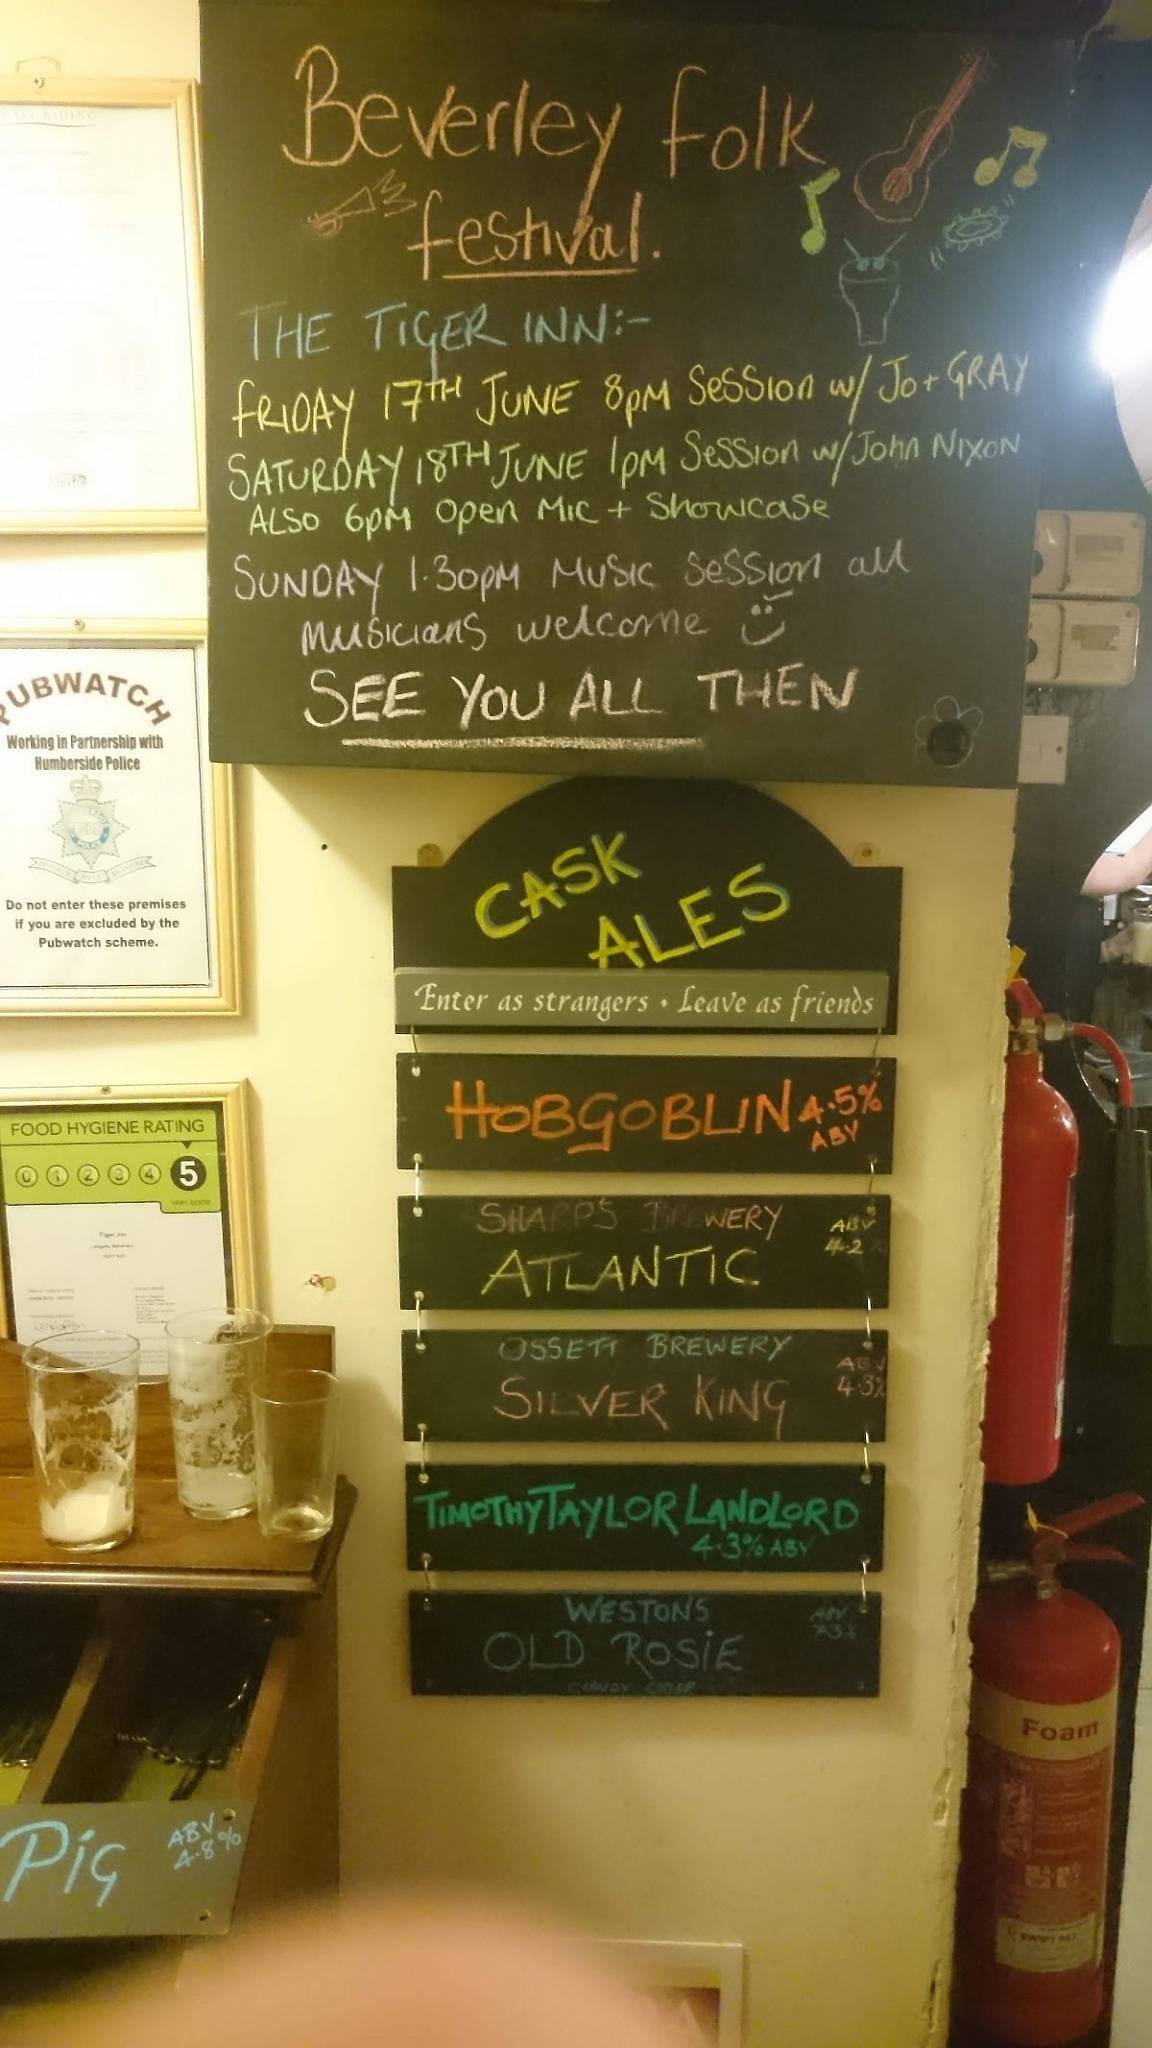 Beverley folk
festival.
THE TIGER INN:-
FRIDAY 17TH JUNE 8pM Session w/ Jo + GRAY
SATURDAY 18TH JUNE 1pM Session w/ John NIXON
ALSO 6pM Open Mic + Showcase
SUNDAY 1.30pM Music Session all
Musicians welcome
SEE YOU ALL THEN
PUBWATCH
Working in Partnership with
Humberside Police
Do not enter these premises
if you are excluded by the
Pubwatch scheme.
CASK
ALES
Enter as strangers • Leave as friends
HOBGOBLIN 4.5%
ABV
SHARP'S BREWERY
ATLANTIC
ABV
4.2
OSSETT BREWERY
SILVER KING
ABV
4.3%
TIMOTHY TAYLOR LANDLORD
4.3% ABV
WESTONS
OLD ROSIE
ABV
CLOUDY CIDER
FOOD HYGIENE RATING
0 1 2 3 4 5
VERY GOOD
Tiger Inn
Pig
ABV
4.8%
Foam